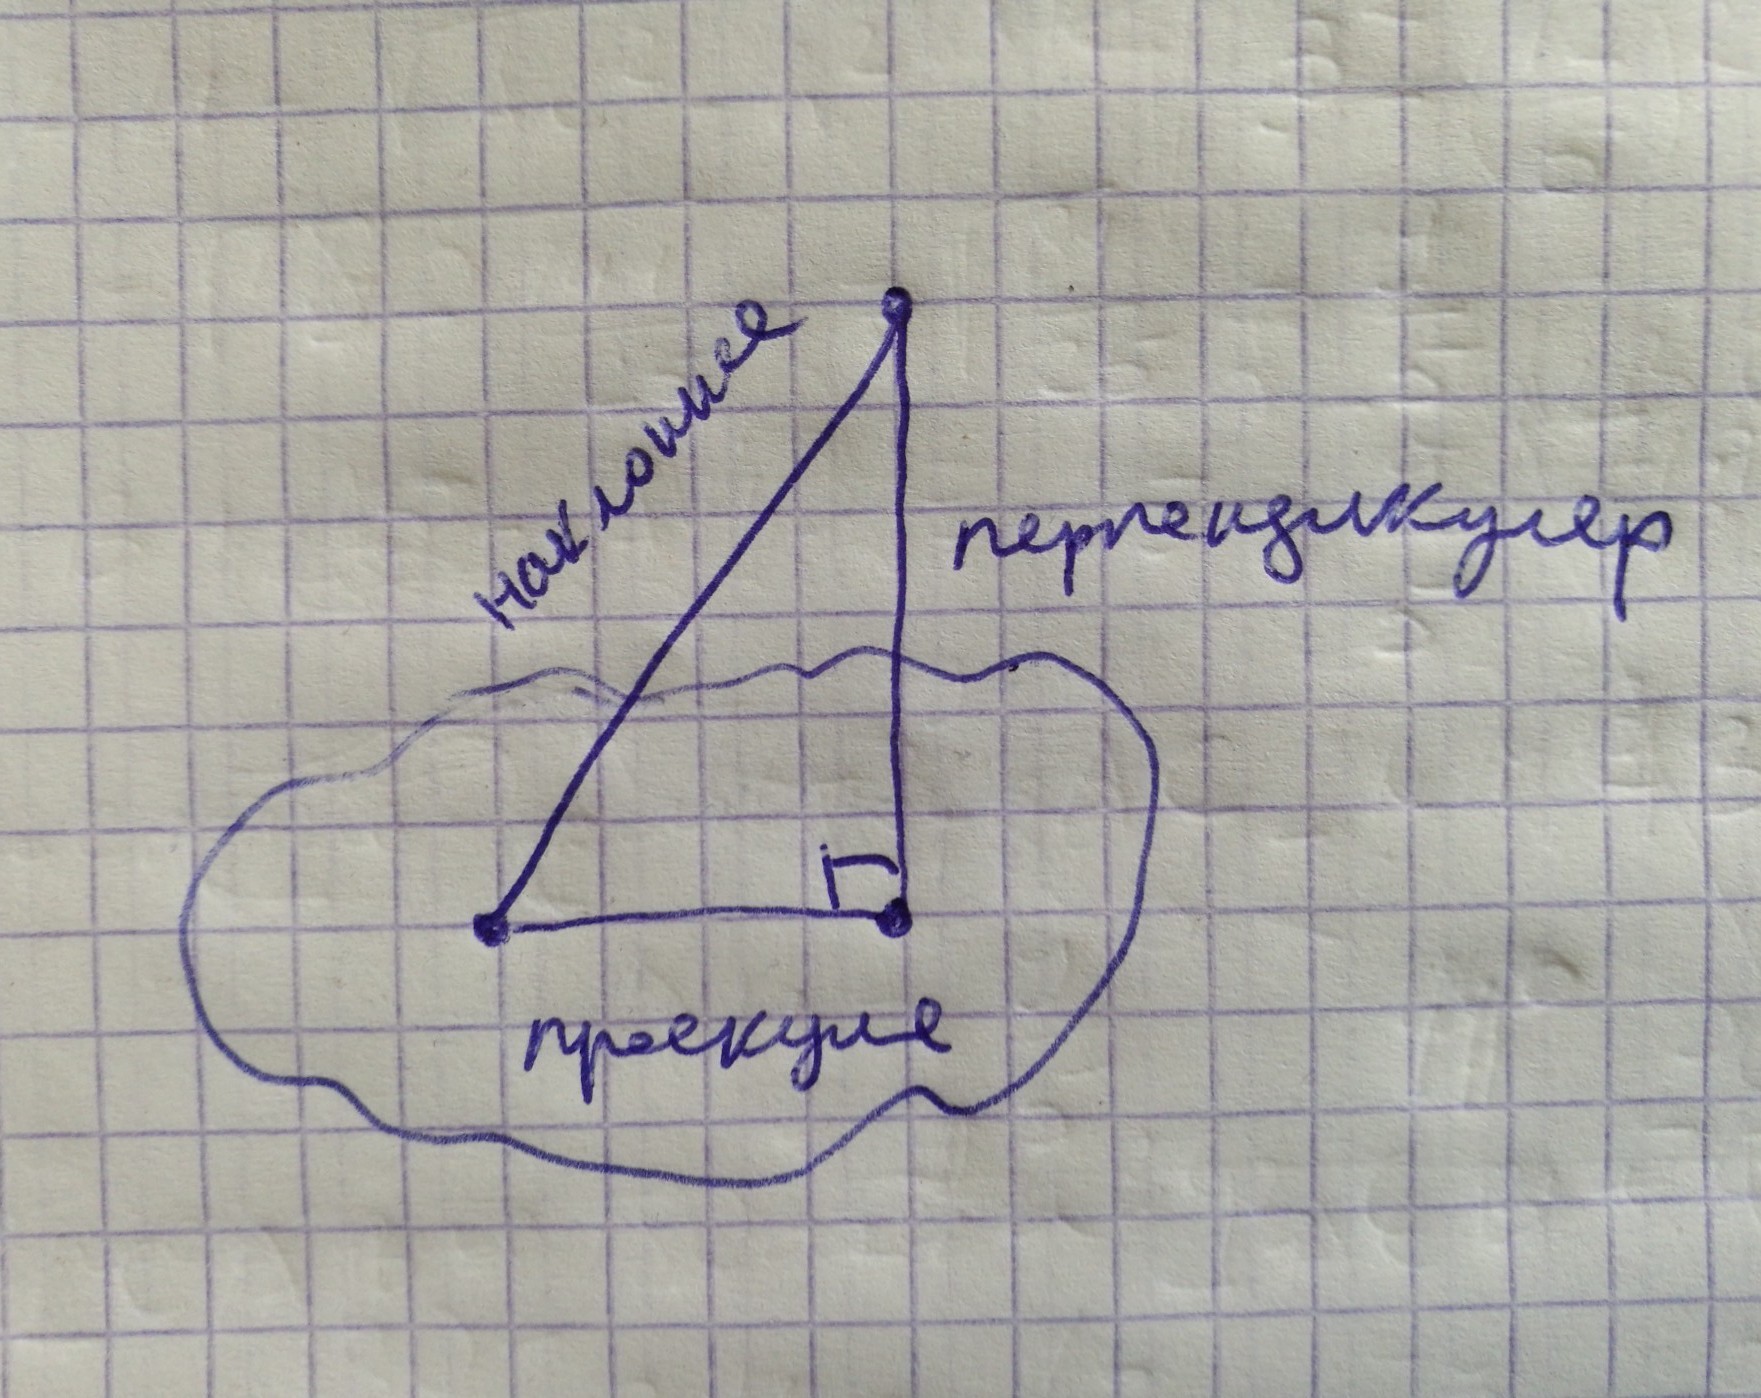 наклонная
перпендикуляр
проекция